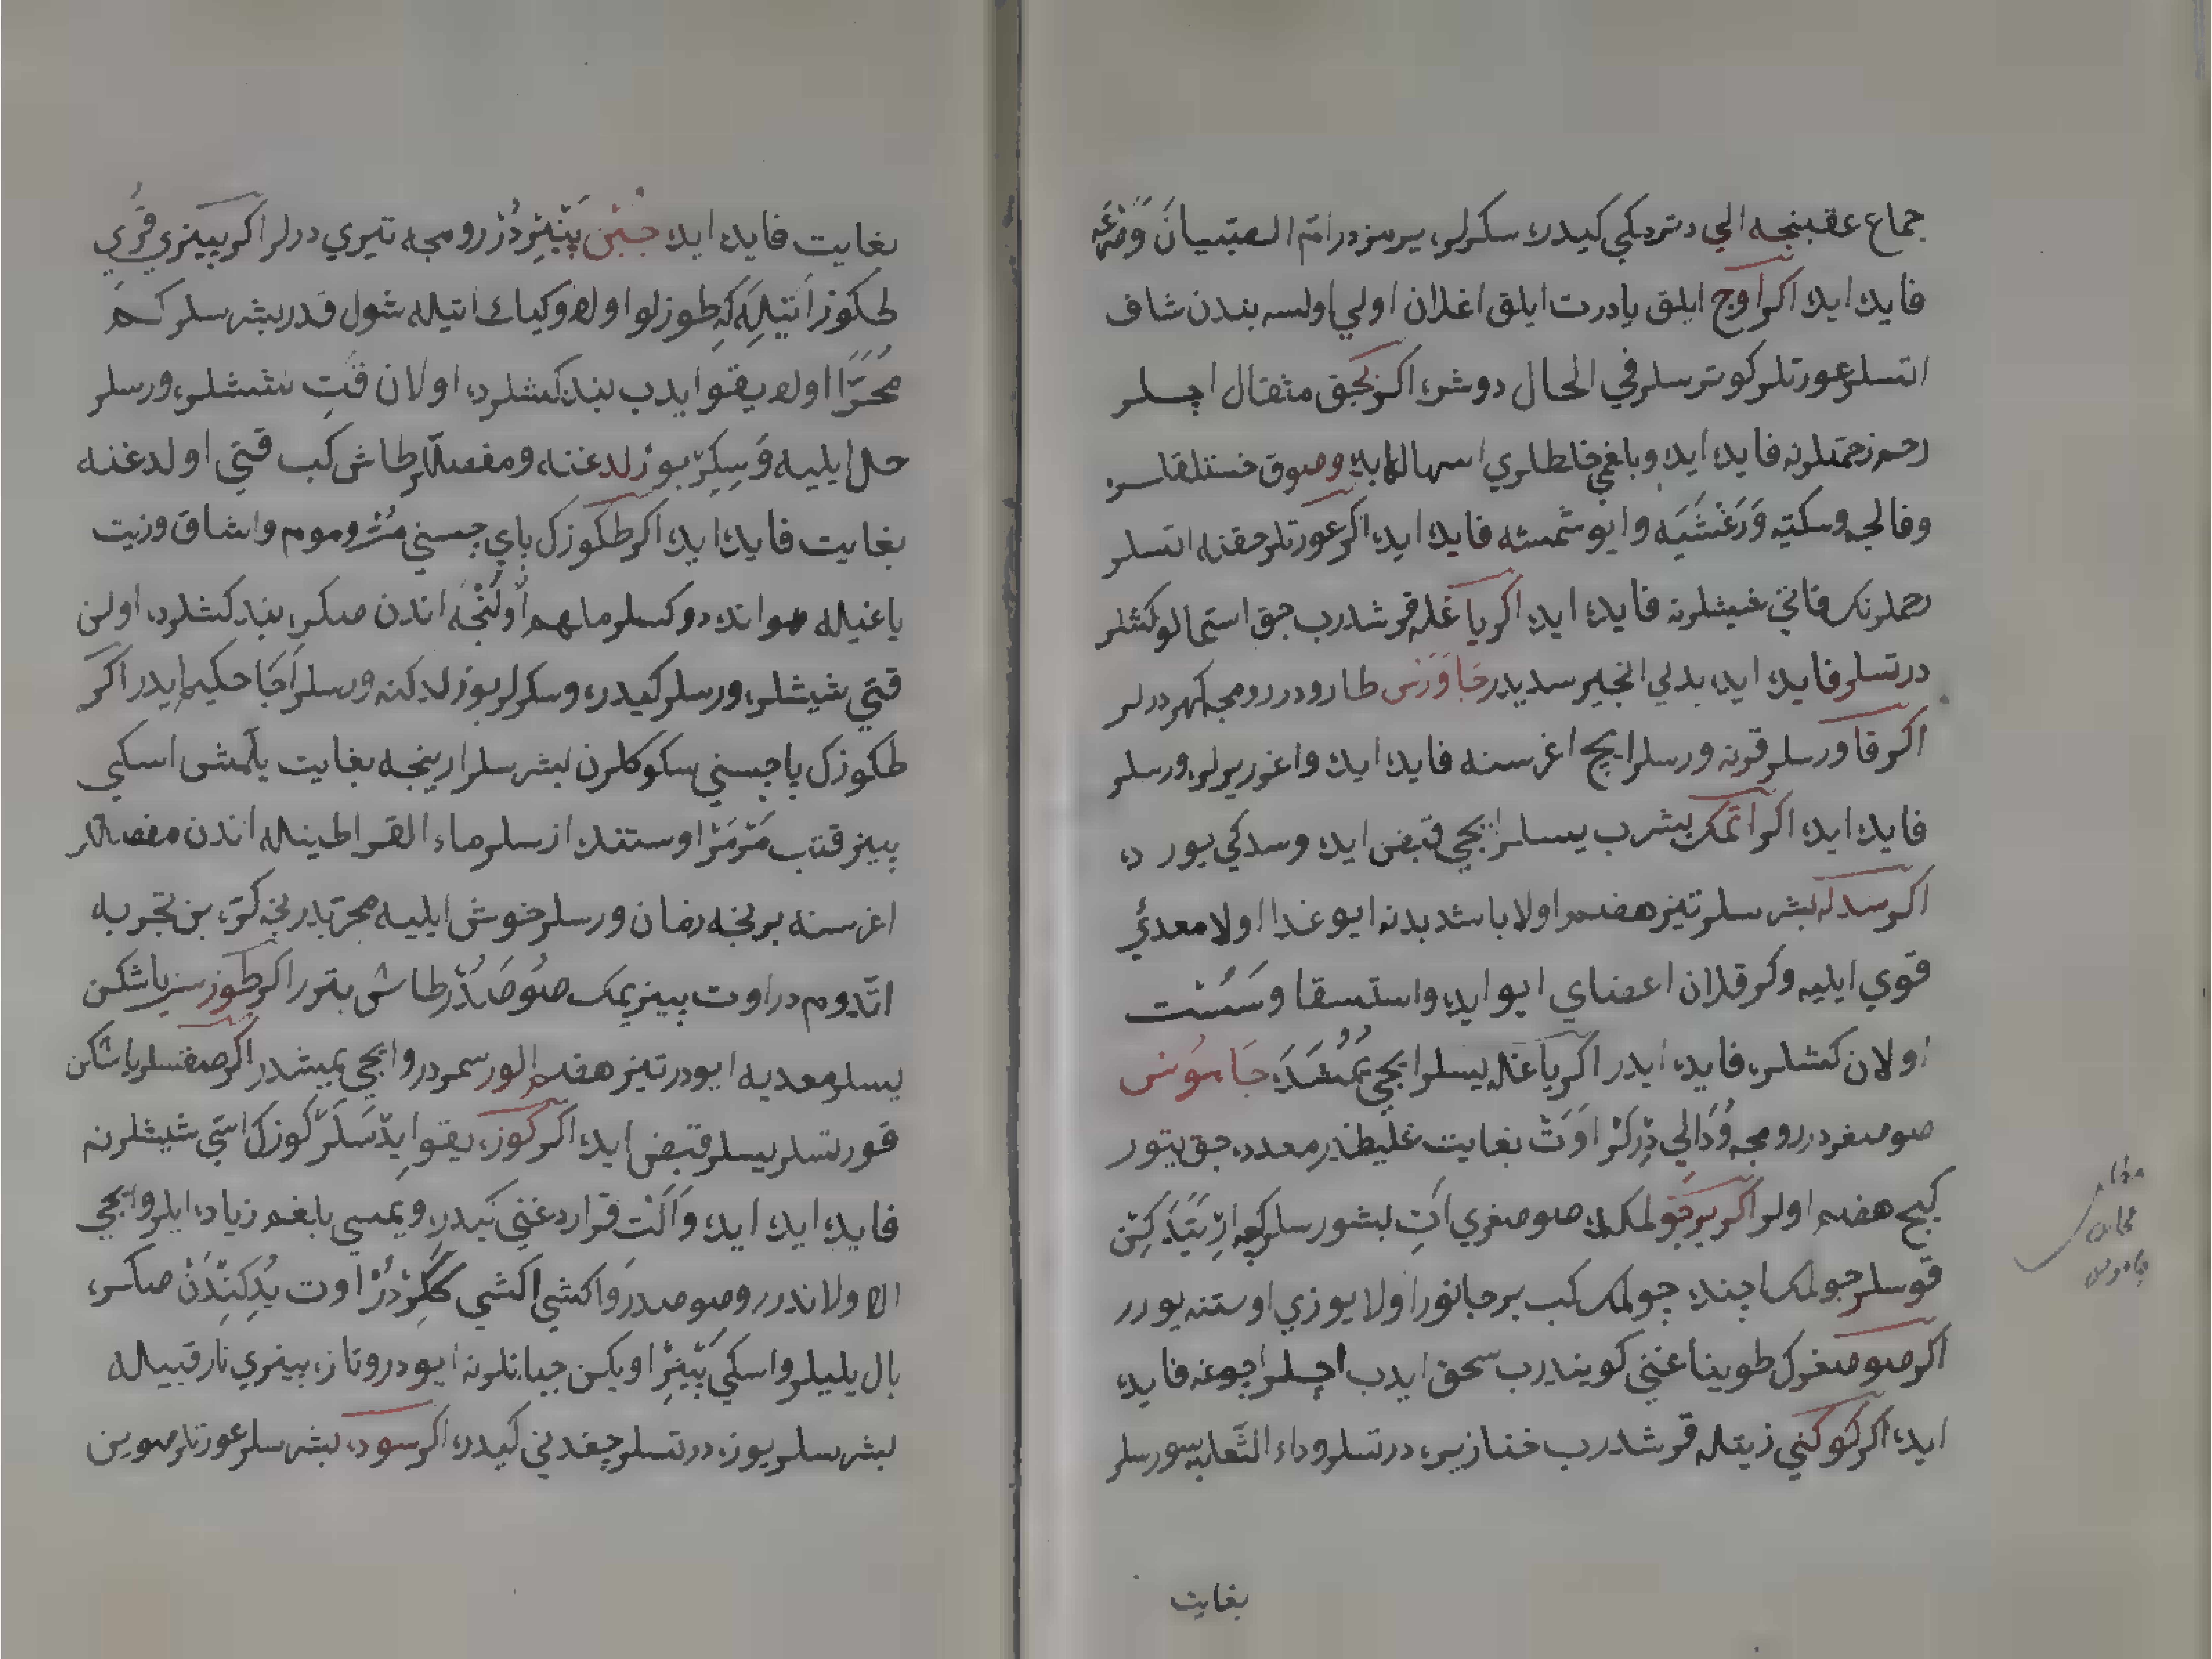 جماع عقبنجه الي دتردكي كيدره سكرلري يرمزدر امّ الصّبيانَ وَصَرْعَه
فايده ايده اكر اوج ايلق يا درت ايلق اغلان اولي اولسه بندن شاف
اتسلر عورتلر كوترسلر في الحال دوشره اكر نجق مثقال اچسلر
رحم زحمتلرنه فايده ايده وبلغمي خلطلري اسهال ايده وصوق خستلقلره
وفالجه وسكتيه وَرَعْشَيَه وايو شمسه فايده ايده اكر عورتلر حقنه اتسلر
رحملرنك قاتي شيشلرنه فايده ايده اكر ياغله قرشدرب جق استمالو كشلر
درتسلر فايده ايده بدلي انجير سديدر جَاوَرْس طارودر رومجه كهر درلر
اكر قاورسلر قرنه ورسلر ايچ اغرسنه فايده ايده واغرر يرلره ورسلر
فايده ايده اكر اتمك بشرب يسلر ايچي قبض ايده وسدكي يور د
اكر سدله بشرسلر تيز هضم اولا باشد بدنه ايو غدا اولا معدئي
قوي ايليه وكرقلان اعضاي ايو ايده واستسقا وسَسُسْت
اولان كشلره فايده ايدر اكر ياغله يسلر ايچي يُمُشَدَه جَامُوسْ
صوصغردر رومجه وُدَالي دِرْلَرْ اَوَتْ بغايت غليظدر معدده جق يتور
كيج هضم اولر اكر بر قتو لمكده صوصغري اَتِ بشورسلر كجه اِرْتَيَدَكِنْ
قوسلر جولمك اچنده جولمك كب بر جانور اولا يوزي اوستنه يورر
اكر صوصغرك طوينا غني كويندرب سحق ايدب اچسلر اچوغه فايده
ايده اكر كوكني زيتله قرشدرب خنازيره درتسلر وداء الثّعلبه سورسلر
بغايت
بغايت فايده ايده جُبْن پَيْنِرْدُرْ رومجه تيري درلر اكر پينري قُرُي
طكوز اَتيلَه كِه طوزلو اولا وكياك اتيله شول قدر بشرسلر كم
مُحَرَّا اولا يقو ايدب بندكشلرده اولان قَتِ شيشلره ورسلر
حل ايليه وَسِكِرْ بوزلدغنه ومفصللر طاش كب قتي اولدغنه
بغايت فايده ايده اكر طكوزك باي چسني مُرْ وموم واشاق وزيت
ياغيله هوانده دوكسلر ملهم اُولُنْجَه اندن صكره بندكشلرده اولن
قتي شيشلره ورسلر كيدره وسكرلر بوزلدكنه ورسلر اجا حكيم ايدر اكر
طكوزك پاچسني سكوكلرن بشرسلر ارينجه بغايت يلمشى اسكي
پينر قتب مَرْمَرْ اوستنده ازسلر ماء القراطينله اندن مفصللر
اغرسنه بر نجه زمان ورسلر خوش ايليه مجرّبدر نجه كره بن تجربه
اتّدوم در اوت پينر يمك صُوصَدُرْ طاش بتورر اكر طوزسز ياشكن
يسلر معديه ايودر تيز هضم اولور سمردر وايچي يمشدر اكر صقسلر ياشكن
قورتسلر يسلر قبض ايده اكر كوزه يقو ايدّسَلَرْ كوزك اسّي شيشلرنه
فايده ايده ايده وَاَلَتْ قراردغني كيدره ويمسي بلغم زياده ايلر وايچي
الا ولاندرر وصوصدر وَاكشي اكشي كَكِرْدُرْ اوت يُدِكِنْدَنْ صكره
بال يليلر واسكي پَيْنِرْ اويكن جبانلرنه ايودر وتازه پينري نار قبيله
بشرسلر يوزه درتسلر چغدني كيدره اكر سوده بشرسلر عورتلر صوين